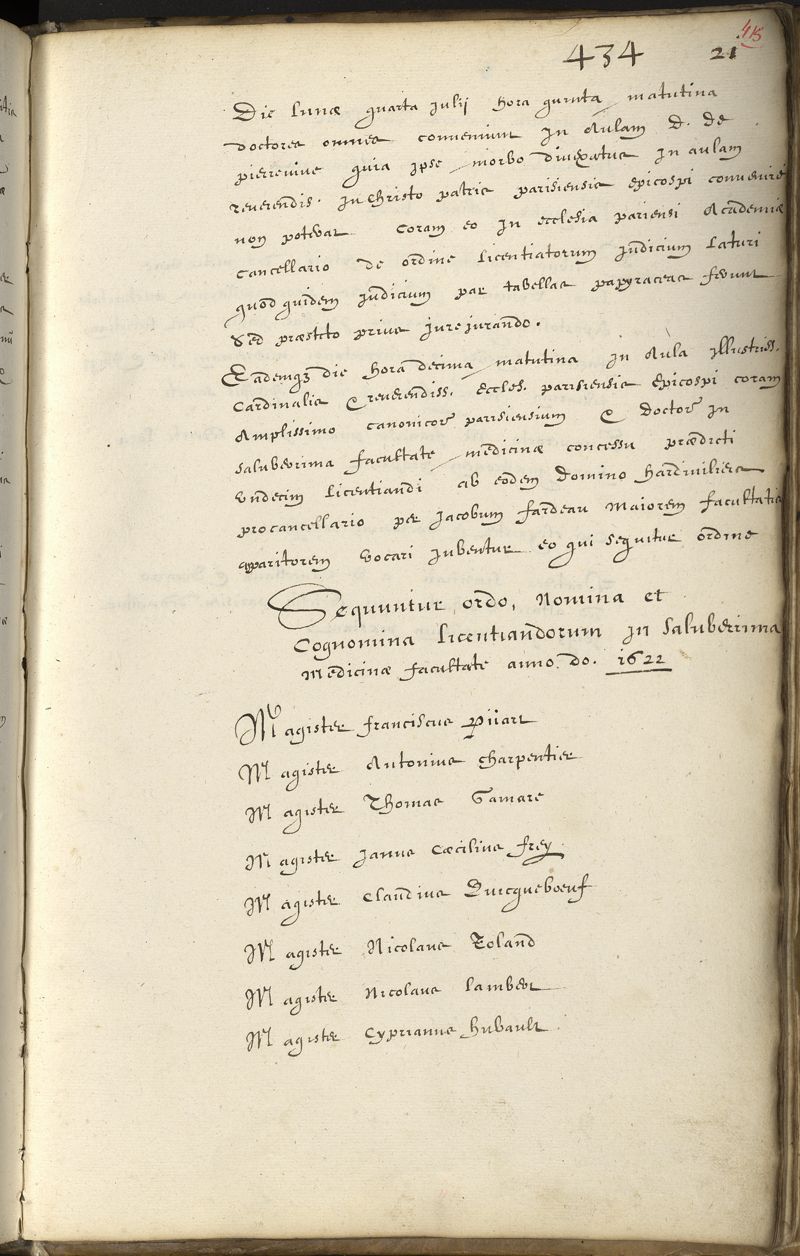 415
434 21
Die Lunæ quarta julij hora quinta matutina
doctores omnes conveniunt in Aulam D. de
pierrevive quia ipse morbo divexatus in aulam
reverendis. in Christo patris parisiensis episcopi convenire
non poterat coram eo in ecclesia pariensi Academiæ
cancellario de ordine Licentiatorum judicium Laturi
quod quidem judicium per tabellas papyraceas ferunt
sed præstito prius jurejurando.
Eademq; die hora decima matutina in Aula illustriss.
Cardinalis & reverendiss. eccles. parisiensis episcopi coram
Amplissimo canonicor parisiensium & doctor in
saluberrima facultate medicinæ concessu prædicti
undecim Licentiandi ab eodem Domino hardiviliers
procancellario per Jacobum fardeau Maiorem facultatis
apparitorem vocari jubentur eo qui sequitur ordine
Sequuntur ordo, Nomina et
Cognomina Licentiandorum in saluberrima
Medicinæ facultate anno do. 1622
Magister franciscus
Magister Antonius Charpentier
Magister Thomas Gamare
Magister Janus Cæcilius frey
Magister Claudius Quicqueboeuf
Magister Nicolaus Roland
Magister Nicolaus Lambert
Magister Cyprianus hubault